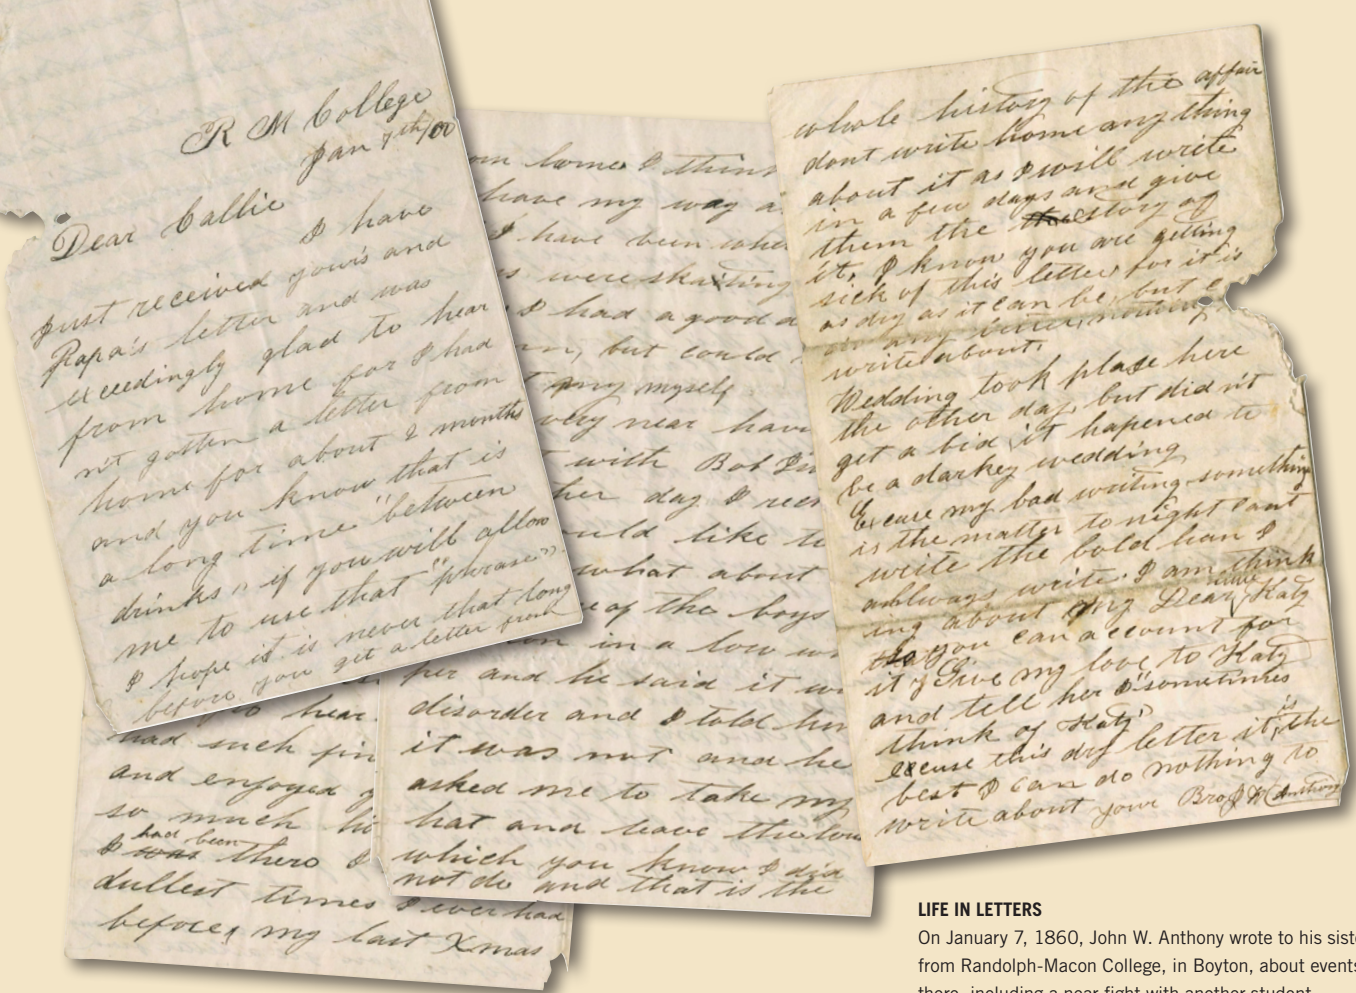 R M College
Jan 7th/60
Dear Callie
I have
just received your's and
Papa's letter and was
exceedingly glad to hear
from home for I had
n't gotten a letter from
home for about 2 months
and you know that is
a long time "between
drinks" if you will allow
me to use that "phrase".
I hope it is never that long
before you get a letter from
to hear
had such fin
and enjoyed
so much
had been
I was there I
dullest times I ever had
before, my last Xmas
home I think
have my way a
I have been
were skating
I had a good
but could
my myself
very near hav
with Bob
her day I
uld like to
what about
of the boys
in a low
her and he said it
disorder and I told him
it was not and he
asked me to take my
hat and leave the
which you know I did
not do and that is the
whole history of the affair
dont write home any thing
about it as I will write
in a few days and give
them the story of
it, I know you are getting
sick of this letter for it is
as dry as it can be, but
write about.
Wedding took place here
the other day, but did n't
get a bid, it hapened to
be a darkey wedding
Excuse my bad writing something
is the matter to night I ant
write the bold han I
allways write. I am think
ing about My Dear Katy
you can account for
it, Give my love to Katy
and tell her I "sometimes
think of Katy"
excuse this dry letter it is the
best I can do nothing to
write about your Bro J W Anthony
LIFE IN LETTERS
On January 7, 1860, John W. Anthony wrote to his sist
from Randolph-Macon College, in Boyton, about events
there, including a near fight with another student